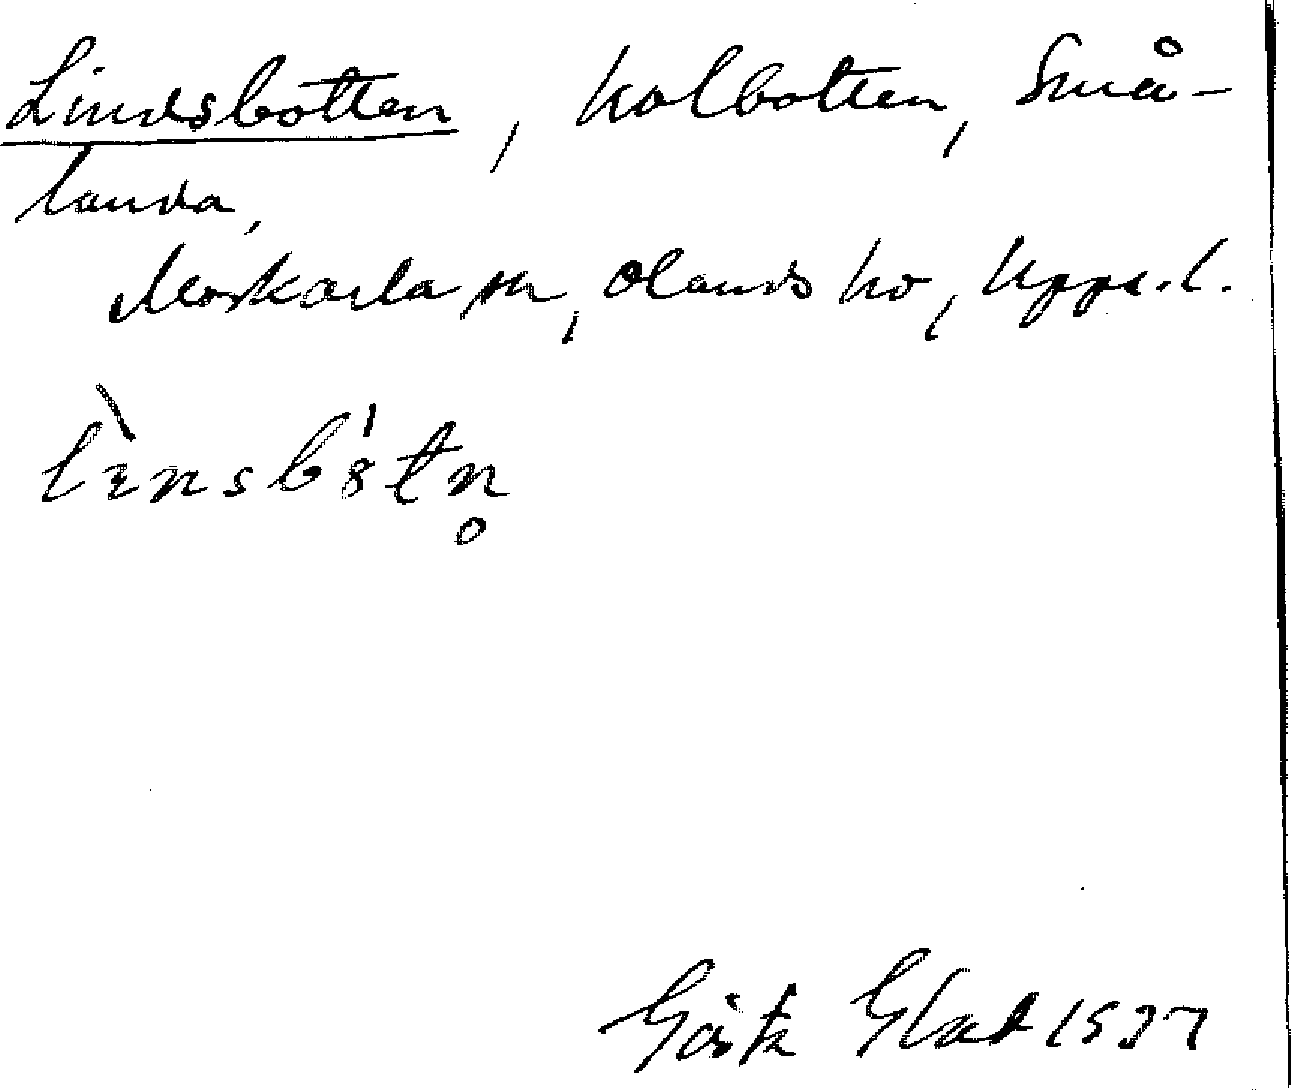 Lindsbotten, kolbotten, Små-
landa,
Morkarla sn, Olands hd, Uppl.
lìnsbòtn̥
Gösta Glad 1937